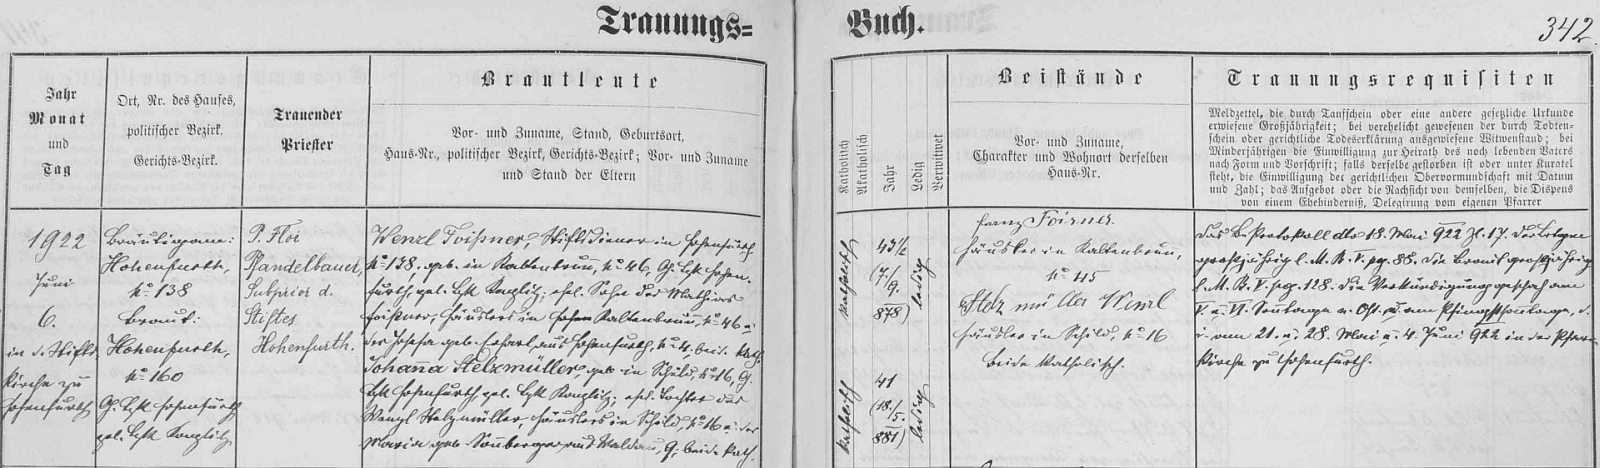 Trauungs=
Buch.
342.
Jahr
Monat
und
Tag
Ort, Nr. des Hauses,
politischer Bezirk.
Gerichts-Bezirk.
Trauender
Priester
Brautleute
Vor- und Zuname, Stand, Geburtsort,
Haus-Nr., politischer Bezirk, Gerichts-Bezirk; Vor- und Zuname
und Stand der Eltern
Katholisch
Akatholisch
Jahr
Ledig
Verwitwet
Beistände
Vor- und Zuname,
Charakter und Wohnort derselben
Haus-Nr.
Trauungsrequisiten
Meldzettel, die durch Taufschein oder eine andere gesetzliche Urkunde
erwiesene Großjährigkeit; bei verehelicht gewesenen der durch Todten-
schein oder gerichtliche Todeserklärung ausgewiesene Witwenstand; bei
Minderjährigen die Einwilligung zur Heirath des noch lebenden Vaters
nach Form und Vorschrift; falls derselbe gestorben ist oder unter Kuratel
steht, die Einwilligung der gerichtlichen Obervormundschaft mit Datum
und Zahl; das Aufgebot oder die Nachsicht von demselben, die Dispens
von einem Ehehinderniß, Delegirung vom eigenen Pfarrer
1922
Juni
6.
in d. Stifts
kirche zu
Hohenfurth
Bräutigam:
Hohenfurth,
No 138
Braut:
Hohenfurth,
No 160
G. Bzk Hohenfurth
pol. Bzk Kaplitz
P. Floi
Pfandelbauer,
Subprior d.
Stiftes
Hohenfurth.
Wenzl Foißner, Stiftsdiener in Hohenfurth
No 138. geb. in Kaltenbrun, No 46, G. Bzk Hohen-
furth, pol. Bzk Kaplitz; ehel. Sohn des Mathias
Foißner, Häuslers in Kaltenbrun, No 46 u.
der Josefa geb. aus Hohenfurth, No 4. beide kath.
Johanna Stelzmüller, geb. in Schild, No 16, G.
Bzk Hohenfurth, pol. Bzk Kaplitz; ehel. Tochter des
Wenzl Stelzmüller, Häuslers in Schild, No 16 u. der
Maria geb. Sonnberger aus Waldau, G. beide kath.
katholisch
43½
(7./
9.
878)
ledig
katholisch
41
(18./
5.
881)
ledig
Franz Foisner
Häusler in Kaltenbrun,
No 45
Stelzmüller Wenzl
Häusler in Schild, No 16
beide katholisch.
Das B. Protokoll dto 18. Mai 922 Zl. 17. Der Bräutigam
großjährig l. M. B. V. pg. 88. Die Braut großjährig
l. M. B. V. pag. 128. Die Verkündigung geschah am
V. u. VI. Sonntage n. Ost. u. am Pfingstsonntage, d.
i. am 21. u. 28. Mai u. 4. Juni 922 in der Pfarr-
kirche zu Hohenfurth.